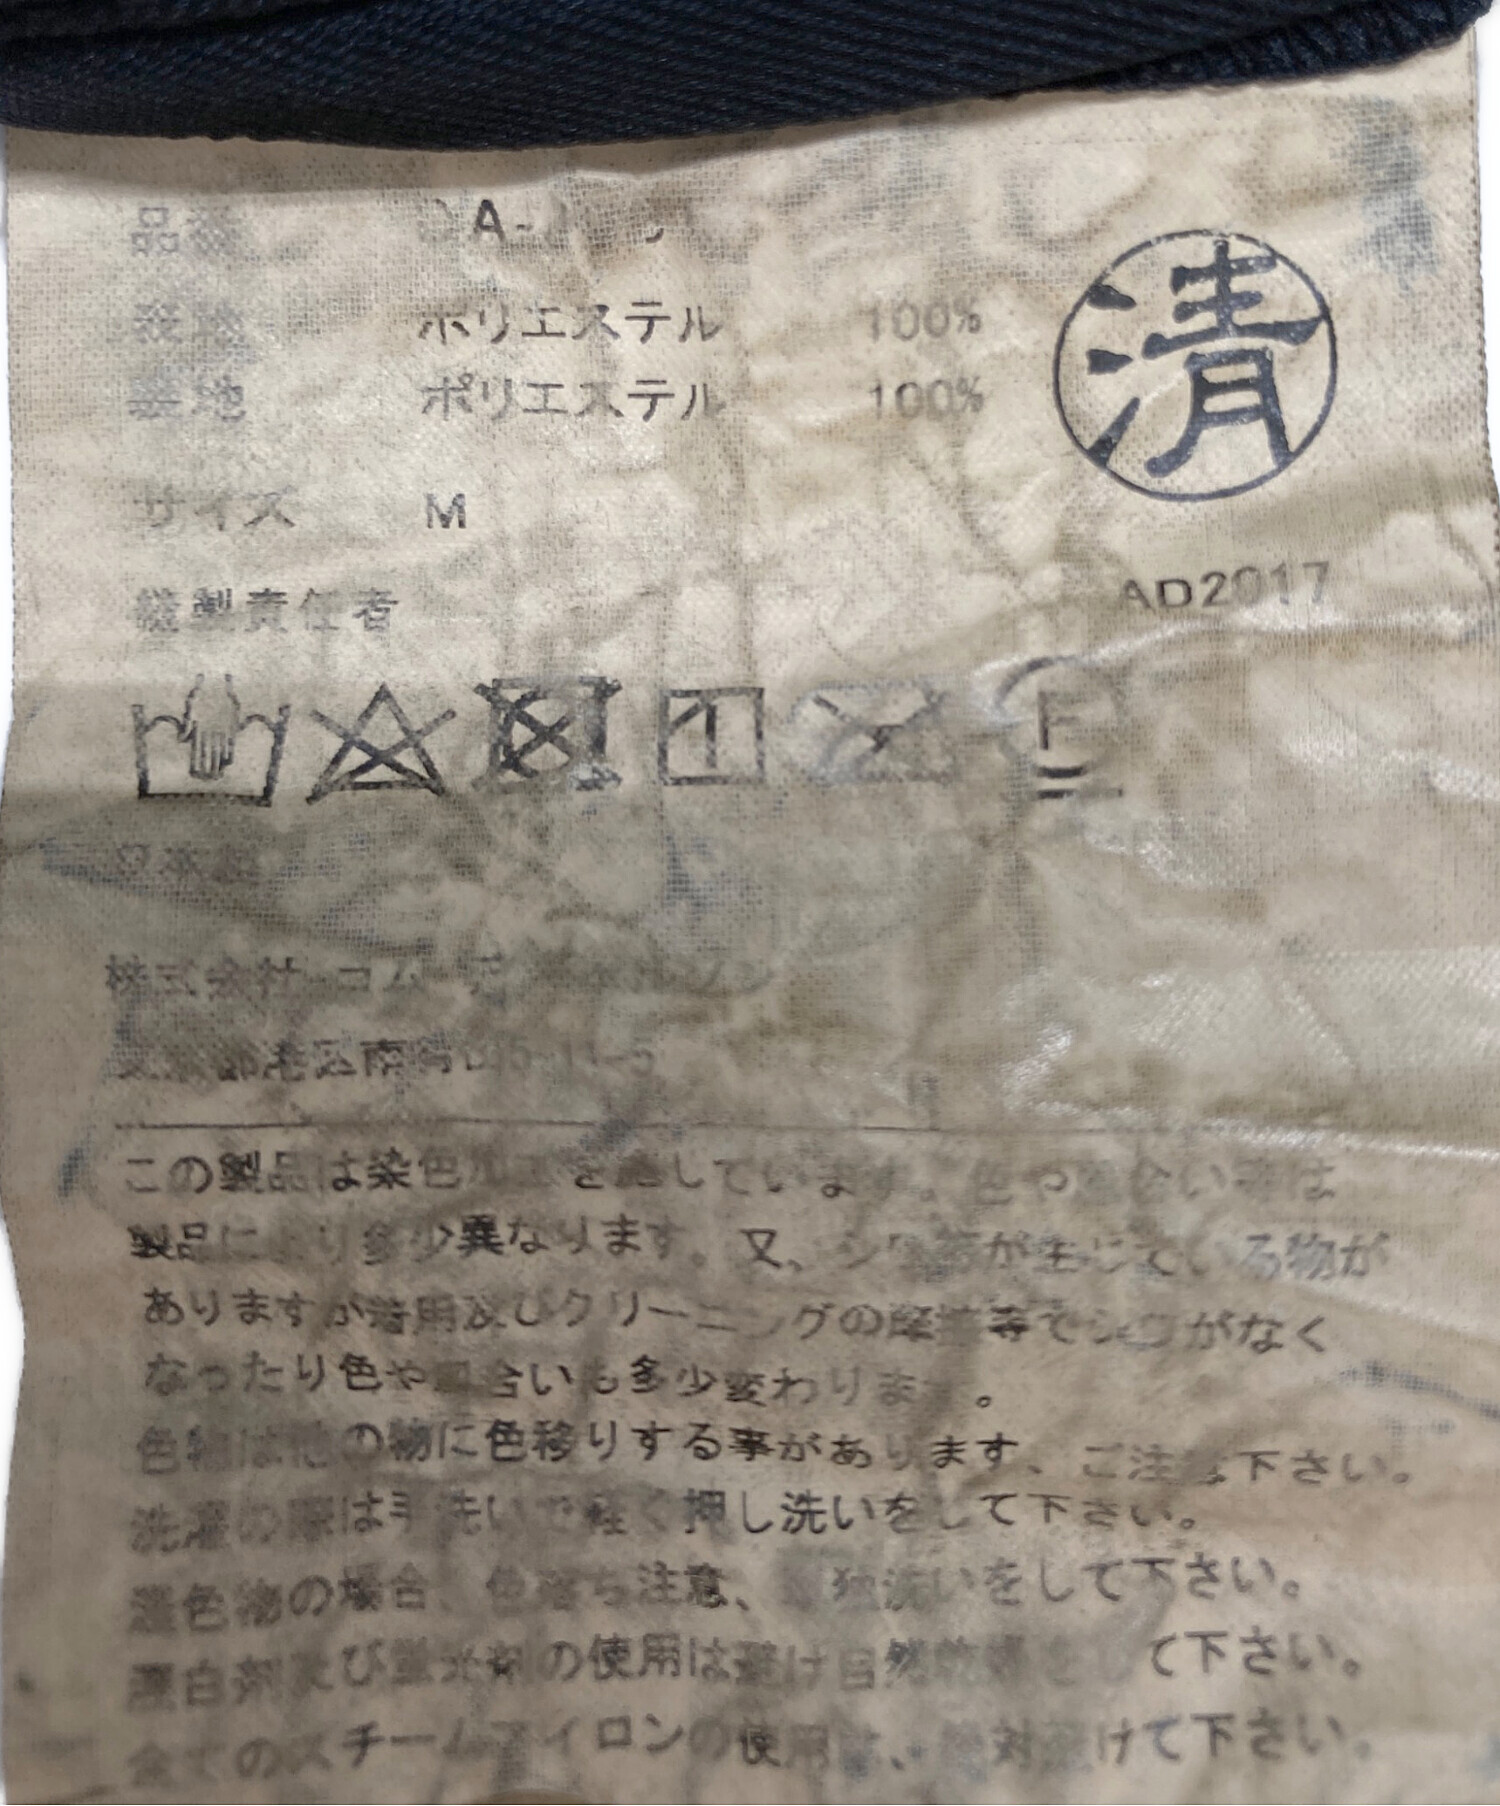 品番 A-
表地 ポリエステル 100%
清
裏地 ポリエステル 100%
サイズ M
AD2017
縫製責任者
F
日本製
株式会社 コム
東京都港区南青山5-11-5
この製品は染色加工を施しています。色や風合い等は
製品により多少異なります。又、シワ等が生じている物が
ありますが着用及びクリーニングの摩擦等でシワがなく
なったり色や風合いも多少変わります。
色物は他の物に色移りする事があります、ご注意下さい。
洗濯の際は手洗いで軽く押し洗いをして下さい。
濃色物の場合、色落ち注意、単独洗いをして下さい。
漂白剤及び蛍光剤の使用は避け自然乾燥をして下さい。
全てのスチームアイロンの使用は、絶対避けて下さい。